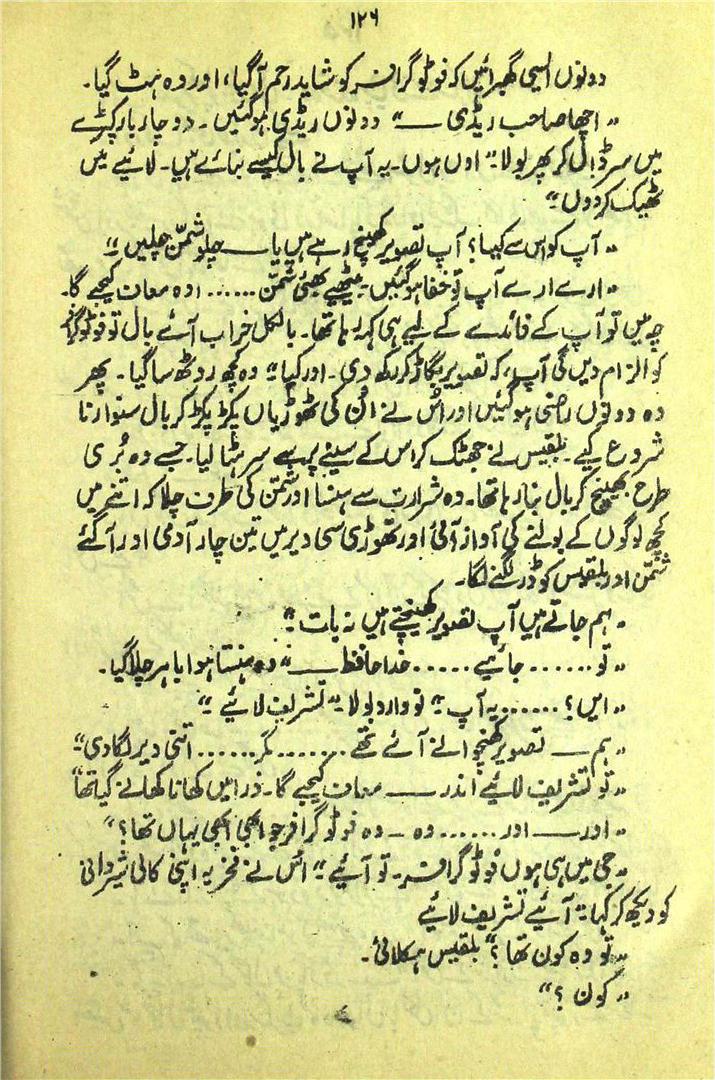 ۱۲۶
دونوں ایسی گھبرائیں کہ فوٹو گرافر کو شاید رحم آگیا، اور وہ ہٹ گیا۔
"اچھا صاحب ریڈی ـــ" دونوں ریڈی ہو گئیں۔ دو چار بار کپڑے
میں سر ڈال کر پھر بولا "اوں ہوں۔ یہ آپ نے بال کیسے بنائے ہیں۔ لائیے میں
ٹھیک کر دوں"
"آپ کو اس سے کیا؟ آپ تصویر کھینچ رہے ہیں یا ـــ چلو شمّن چلیں"
"ارے ارے آپ تو خفا ہو گئیں۔ بیٹھیے بھئی شمّن ...... اوہ معاف کیجیے گا۔
میں تو آپ کے فائدے کے لیے ہی کہہ رہا تھا۔ بالکل خراب آئے بال تو فوٹو گرافر
کو الزام دیں گی آپ، کہ تصویر بگاڑ کر رکھ دی۔ اور کیا" وہ کچھ روٹھ سا گیا۔ پھر
وہ دونوں راضی ہو گئیں اور اس نے ان کی ٹھوڑیاں پکڑ پکڑ کر بال سنوارنا
شروع کیے۔ بلقیس نے جھٹک کر اس کے سینے پر سے سر ہٹا لیا۔ جسے وہ بُری
طرح بھینچ کر بال بنا رہا تھا۔ وہ شرارت سے ہنسا اور شمّن کی طرف چلا کہ اتنے میں
کچھ لوگوں کے بولنے کی آواز آئی اور تھوڑی سی دیر میں تین چار آدمی اور آگئے
شمّن اور بلقیس کو ڈر لگنے لگا۔
"ہم جاتے ہیں آپ تصویر کھینچتے ہیں نہ بات"
"تو ...... جائیے ..... خدا حافظ ـــ" وہ ہنستا ہوا باہر چلا گیا۔
"ایں؟ ...... یہ آپ" نو وارد بولا "تشریف لائیے"
"ہم ـــ تصویر کھنچوانے آئے تھے ....... مگر ...... اتنی دیر لگا دی"
"تو تشریف لائیے اندر ـــ معاف کیجیے گا۔ ذرا میں کھانا کھانے گیا تھا"
"اور ـــ اور ...... وہ ـ وہ فوٹو گرافر جو ابھی ابھی یہاں تھا؟"
"جی میں ہی ہوں فوٹو گرافر۔ تو آئیے" اس نے فخریہ اپنی کالی شیروانی
کو دیکھ کر کہا "آئیے تشریف لائیے
"تو وہ کون تھا؟" بلقیس ہکلائی۔
"کون؟"